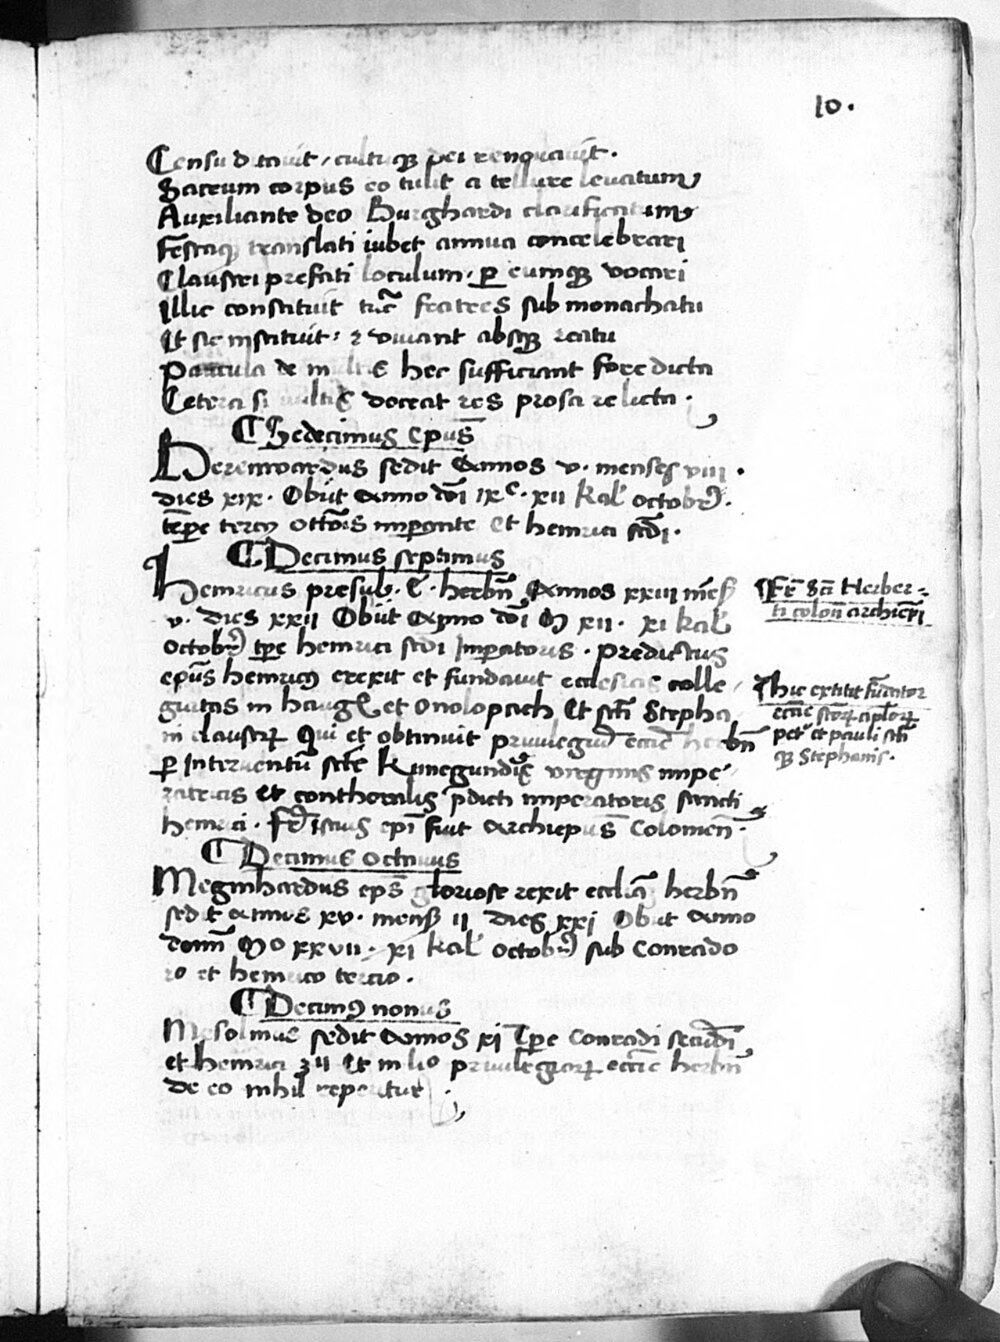 10.
Censu ditauit, cultuque dei renouauit.
Sacrum corpus eo tulit a tellure leuatum
Auxiliante deo Burghardi clarificatum
Festaque translati iubet annua concelebrari
Claustri prefati loculum. per eumque vocari
Illic constituit tunc fratres sub monachatu
Et sic instituit. et viuant absque reatu
Paucula de multis hec sufficiant fore dicta
Cetera si multis doceat res prosa relicta.
Sedecimus epus
Berenwardus sedit Annos v. menses viii.
dies xix. Obiit Anno doi IXc. xii kal octobr.
tempe tercij Ottonis imperante et heinrici scdi.
Decimus septimus
Heinricus presul. E. herbn Annos xxiii mens
v. dies xxii Obiit Anno doi M xii. xi kal
octobr tpe heinrici scdi Imperatoris. Predictus
epus heinricus erexit et fundauit ecclesias colle
giatas in haug et Onolopach Et scti Stepha
ni claustrum Qui et obtinuit priuilegium eccie herbn
per Interuentum scte Kunegundis virginis impe
ratricis et conthoralis pdicti imperatoris sancti
heinrici. Fr istius epi fuit Archiepus Coloniens.
Decimus Octauus
Meginhardus eps gloriose rexit eccliam herbn
sedit annos xv. mens ii dies xxi Obiit Anno
domi M xxvii. xi kal octobr sub Conrado
ro et heinrico tercio.
Decimus nonus
Mesolinus sedit Annos xi Tpe Conradi secundi
et heinrici 3ii Et in lio priuilegiorum eccie herbn
de eo nihil reperitur.
Fr Sci Herber-
ti colon archiepi
Hic extitit fundator
eccie scorum aplorum
petri et pauli scti
que Stephani.